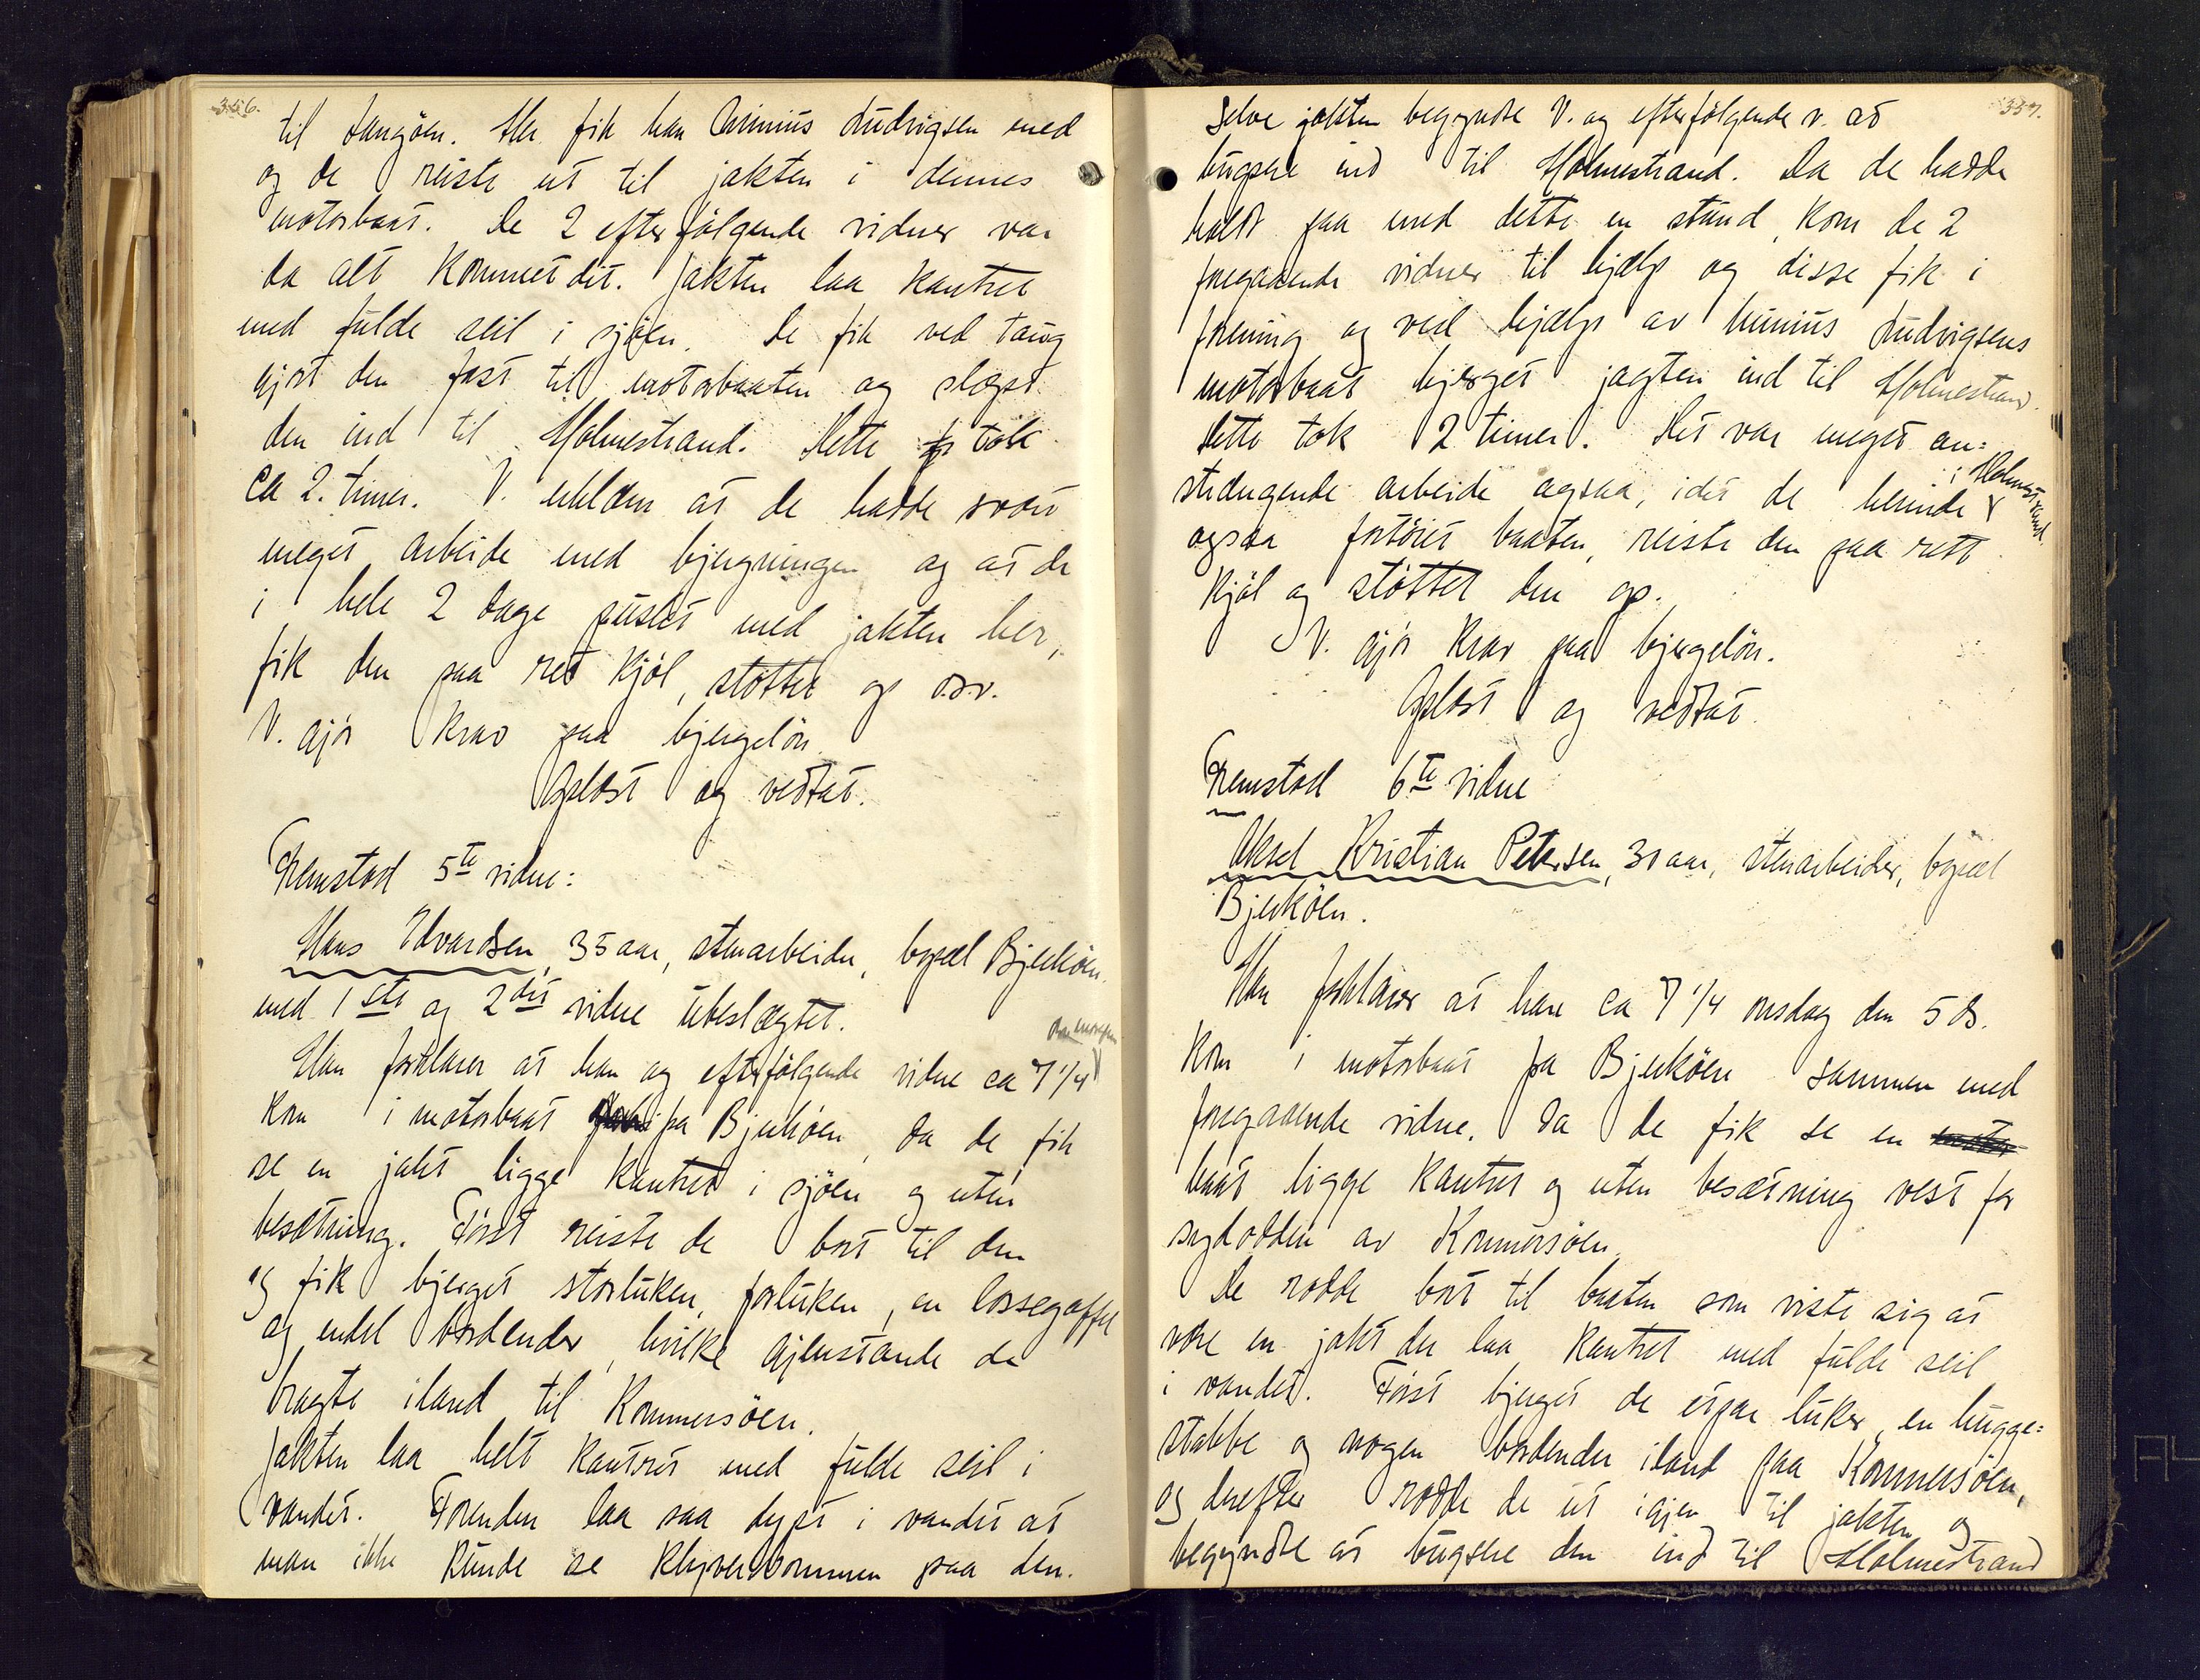 356.
til Langøen. Her fik han Unnius Ludvigsen med
og de reiste ut til jakten i dennes
motorbaat. De 2 efterfølgende vidner var
da alt kommet dit. Jakten laa kantret
med fulde seil i sjøen. De fik ved taug
gjort den fast til motorbaaten og slæpt
den ind til Holmestrand. Dette tok
ca 2. timer. V. erklærer at de hadde svært
meget arbeide med bjergningen og at de
i hele 2 dage puslet med jakten her,
fik den paa ret kjøl, støttet op o.s.v.
V. gjør krav paa bjergeløn.
Oplæst og vedtat.
Fremstod 5te vidne:
Hans Edvardsen, 35 aar, stenarbeider, bopæl Bjerkøen.
med 1ste og 2det vidne ubeslægtet.
Han forklarer at han og efterfølgende vidne ca 7 1/4 om morgen
kom i motorbaat fra Bjerkøen, da de fik
se en jakt ligge kantret i sjøen og uten
besætning. Først reiste de bort til den
og fik bjerget storluken, forluken, en lossegaffel
og endel bordender, hvilke gjenstande de
bragte iland til Kommersøen.
Jakten laa helt kantret med fulde seil i
vandet. Forenden laa saa dypt i vandet at
man ikke kunde se klyverbommen paa den.
357.
Selve jakten begyndte V. og efterfølgende v. at
bugsere ind til Holmestrand. Da de hadde
holdt paa med dette en stund, kom de 2
foregaaende vidner til hjælp og disse fik i
forening og ved hjælp av Unnius Ludvigsens
motorbaat bjerget jagten ind til Holmestrand.
Dette tok 2 timer. Det var meget an=
strængende arbeide ogsaa, idet de herinde i Holmestrand
ogsaa fortøiet baaten, reiste den paa rett
kjøl og støttet den op.
V. gjør krav paa bjergeløn.
Oplæst og vedtat.
Fremstod 6te vidne
Aksel Kristian Petersen, 31 aar, stenarbeider, bopæl
Bjerkøen.
Han forklarer at han ca 7 1/4 onsdag den 5 ds.
kom i motorbaat fra Bjerkøen sammen med
foregaaende vidne. Da de fik se en
baat ligge kantret og uten besætning vest for
sydodden av Kommersøen.
De rodde bort til baaten som viste sig at
være en jakt der laa kantret med fulde seil
i vandet. Først bjerget de et par luker, en hugge=
stabbe og nogen bordender iland paa Kommersøen,
og derefter rodde de ut igjen til jakten og
begyndte at bugsere den ind til Holmestrand